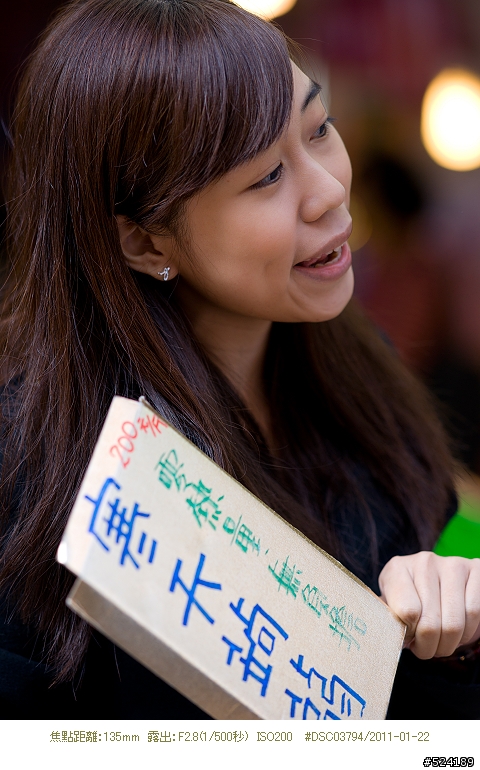 200
零熱量、無負擔
寒天蒟蒻
焦點距離:135mm 露出:F2.8(1/500秒) ISO200 #DSC03794/2011-01-22
#524189